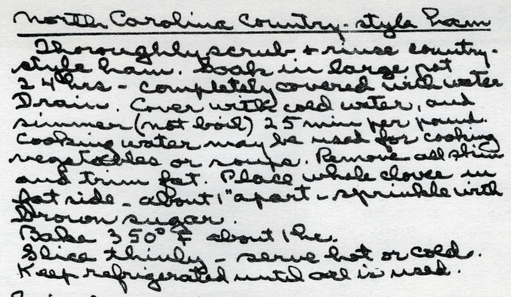 North Carolina Country-style ham
Thoroughly scrub + rinse country-
style ham. Soak in large pot
24 hrs - completely covered with water
Drain. Cover with cold water, and
simmer (not boil) 25 min per pound.
Cooking water may be used for cooking
vegetables or soups. Remove all skin
and trim fat. Place whole cloves in
fat side - about 1" apart - sprinkle with
brown sugar.
Bake 350° F about 1 hr.
Slice thinly - serve hot or cold.
Keep refrigerated until all is used.